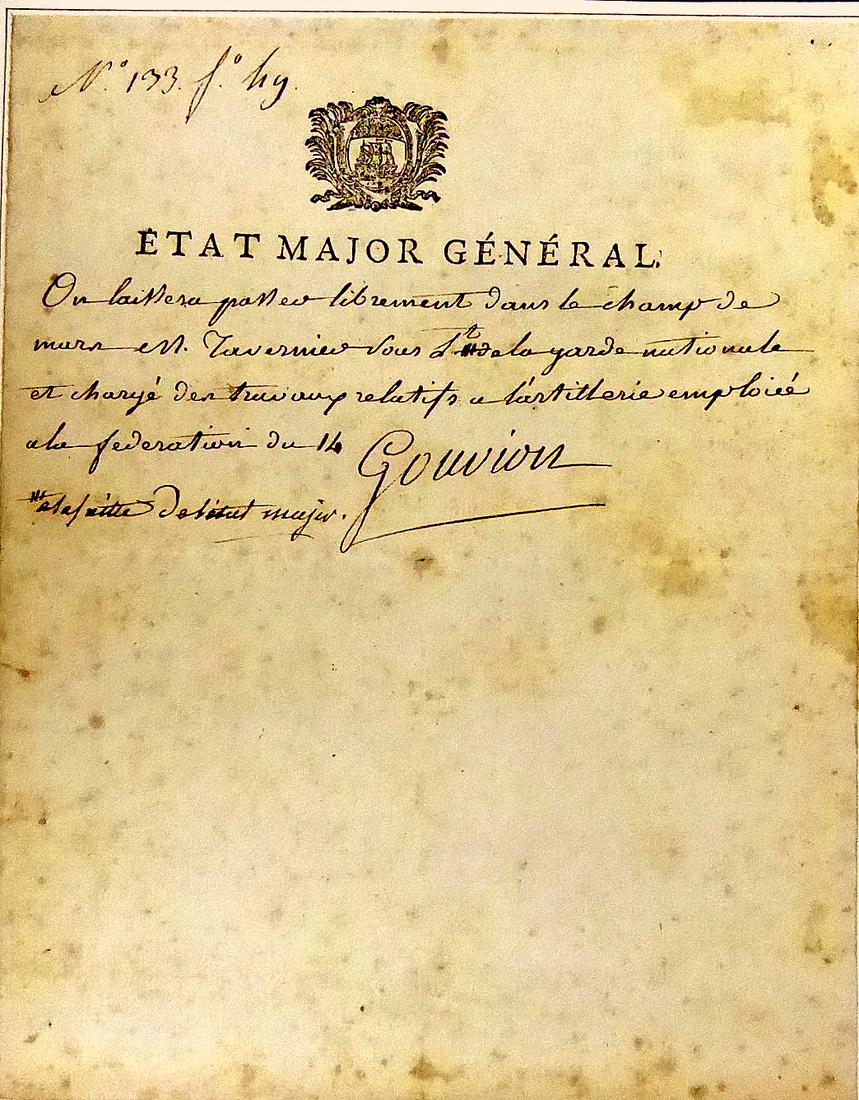 N.° 133. f.° 49.
ÉTAT MAJOR GÉNÉRAL.
On laissera passer librement dans le champ de
mars M. Tavernier sous Lt # de la garde nationale
et chargé des travaux relatifs a l'artillerie emploiée
a la federation du 14 Gouvion
# a la suitte de l'état major.